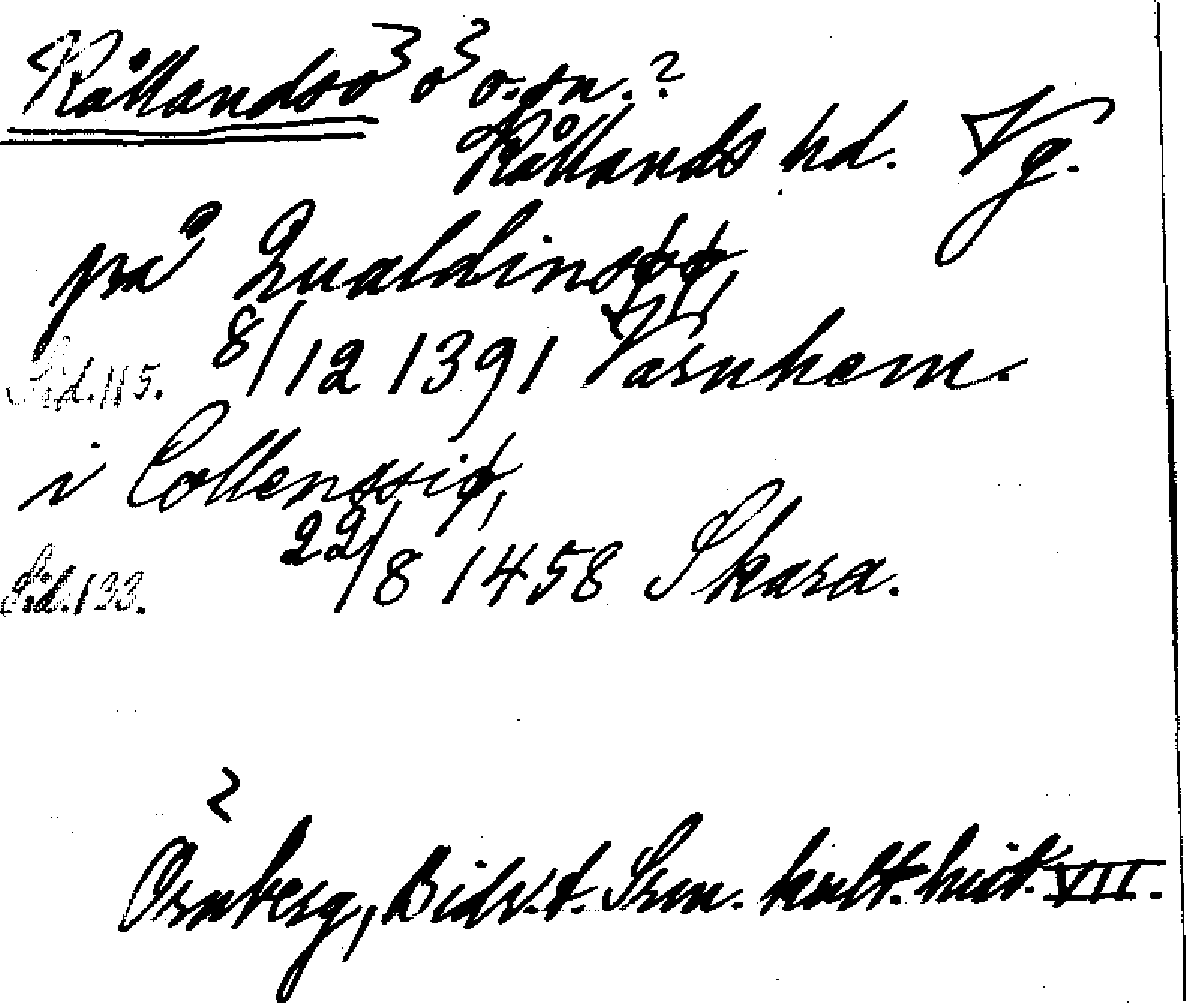 Kållandsö ö o. sn.?
Kållands hd. Vg.
på Qualdinsøø,
Sid. 115. 8/12 1391 Varnhem.
i Collenssiø,
Sid. 133. 22/8 1458 Skara.
Örnberg, Bidr. t. Srm. kult. hist. VII.